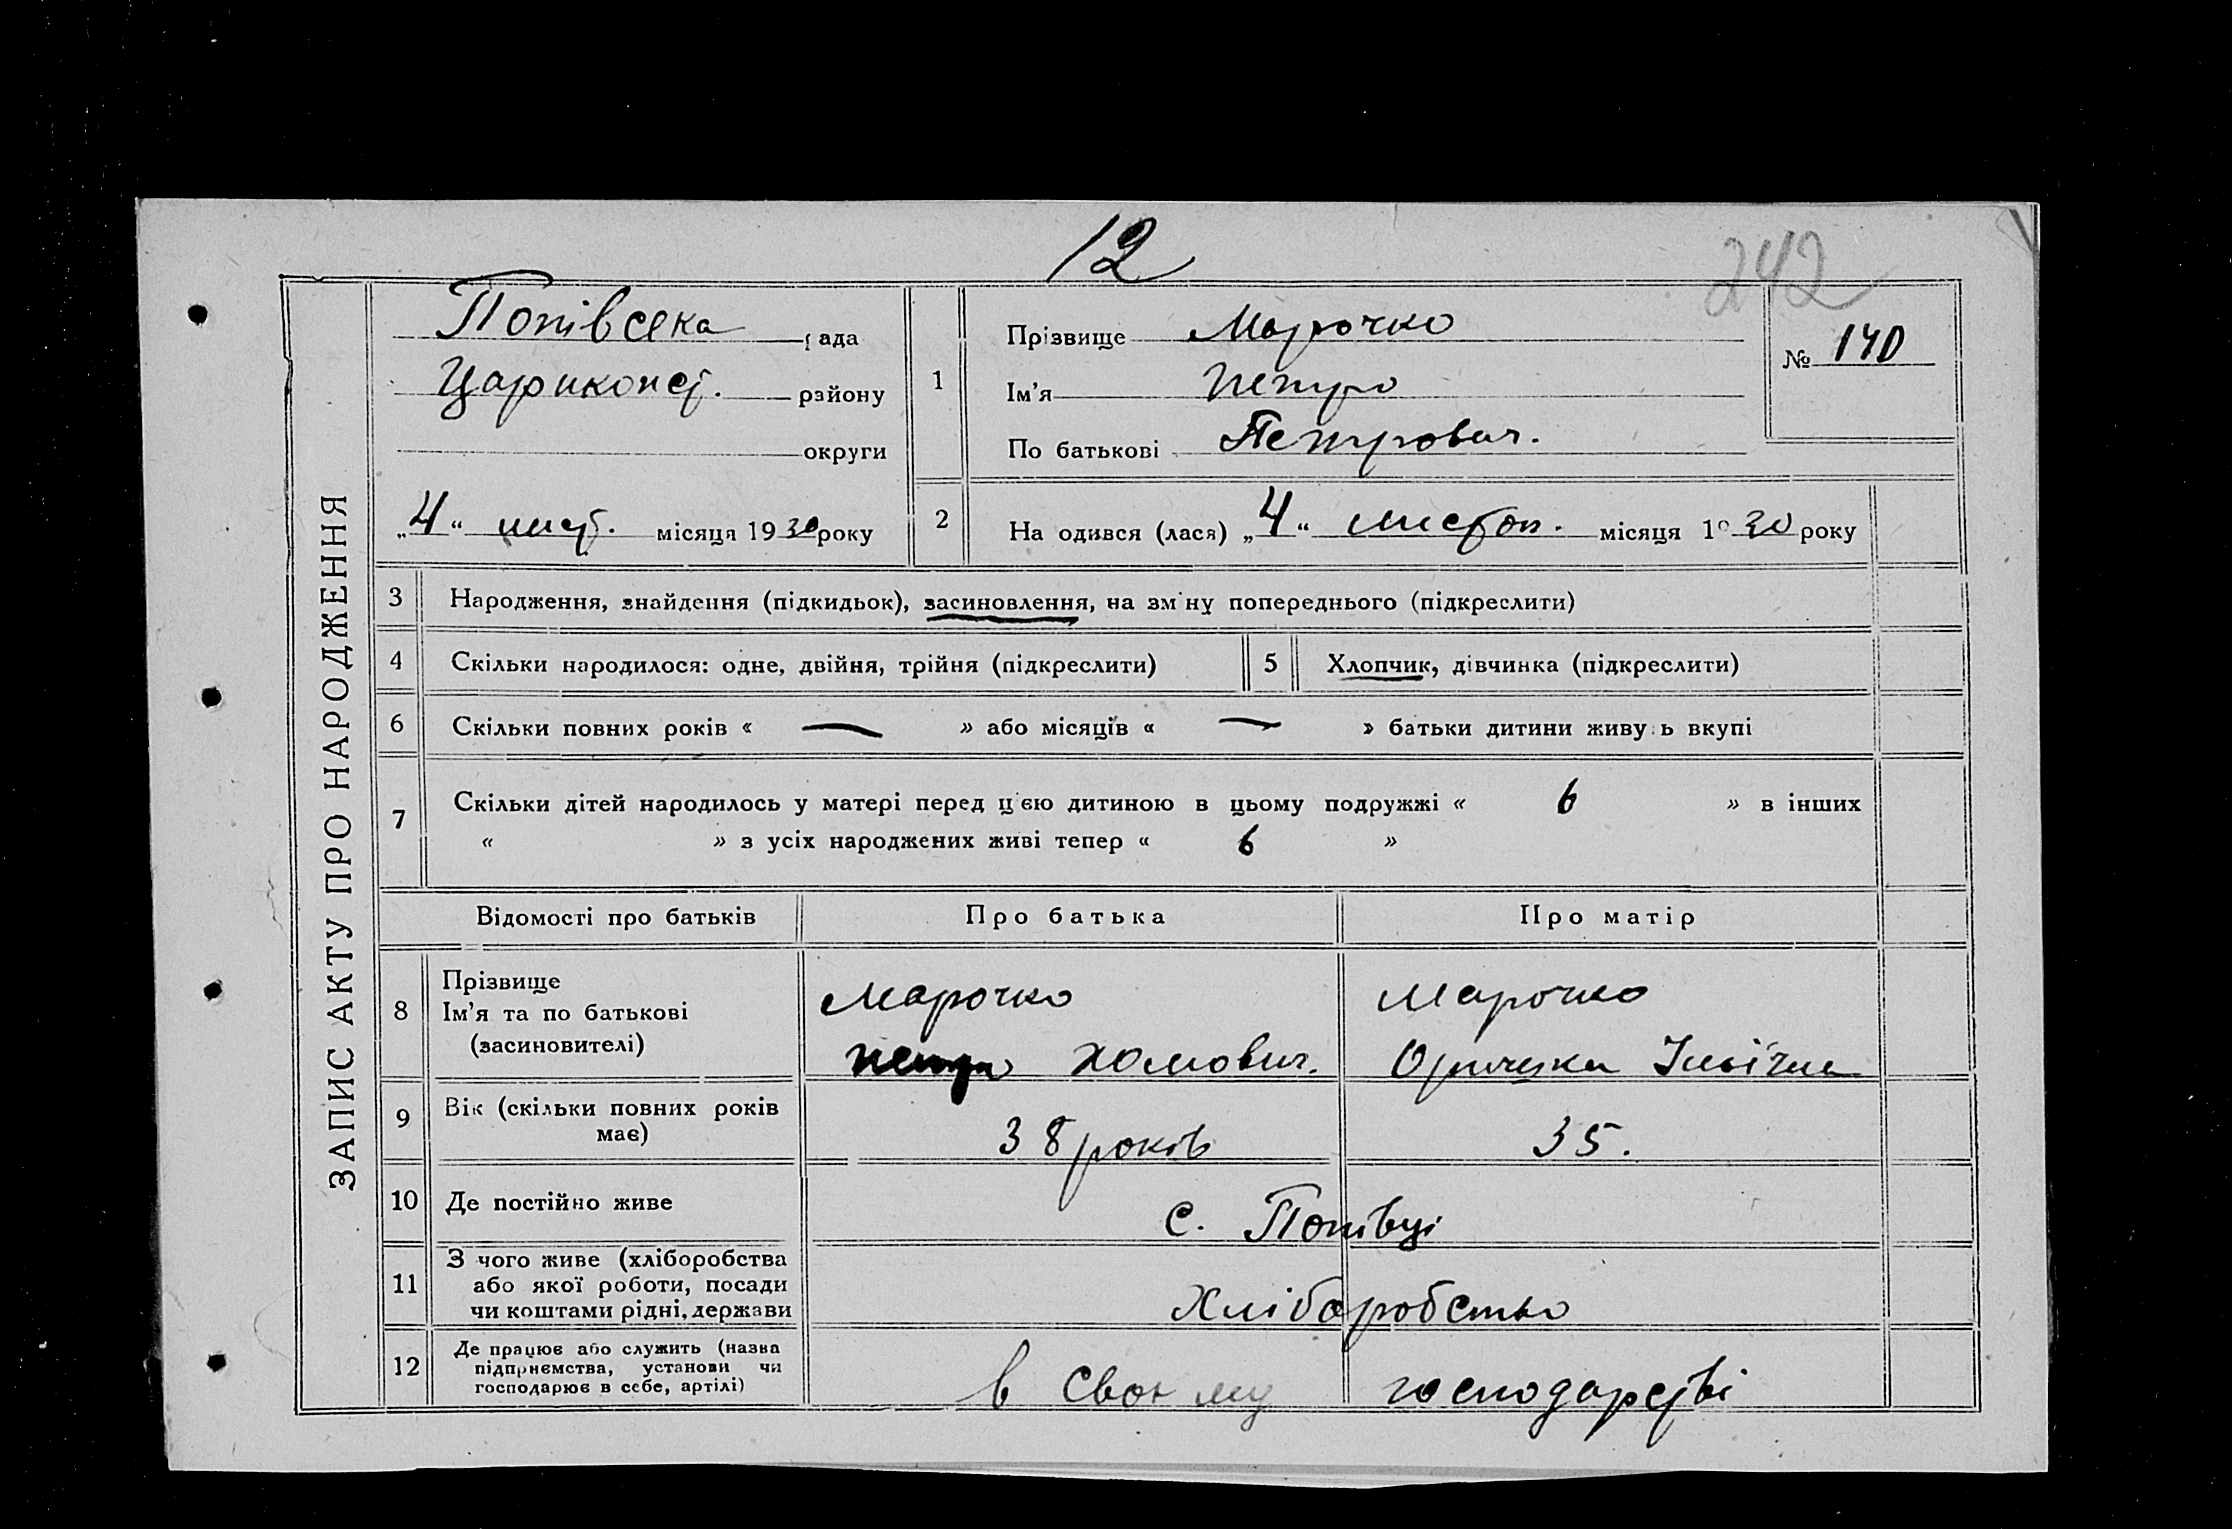 12
242
ЗАПИС АКТУ ПРО НАРОДЖЕННЯ
Попівська рада
Царикон. району
округи
„4“ лист. місяця 1930 року
1
Прізвище Марочко
Ім’я Петро
По батькові Петрович.
№ 140
2
На одився (лася) „4“ листоп. місяця 19 30 року
3 Народження, знайдення (підкидьок), засиновлення, на зм ну попереднього (підкреслити)
4 Скільки народилося: одне, двійня, трійня (підкреслити) 5 Хлопчик, дівчинка (підкреслити)
6 Скільки повних років « — » або місяців « — » батьки дитини живу ь вкупі
7 Скільки дітей народилось у матері перед цією дитиною в цьому подружжі « 6 » в інших
« » з усіх народжених живі тепер « 6 »
Відомості про батьків Про батька Про матір
8 Прізвище
Ім’я та по батькові
(засиновителі)
Марочко
Петро Хомович.
Марочко
Іллівна
9 Вік (скільки повних років
має)
38 років 35.
10 Де постійно живе с. Попівці
11 З чого живе (хліборобства
або якої роботи, посади
чи коштами рідні, держави
Хліборобство
12 Де працює або служить (назва
підприємства, установи чи
господарює в себе, артілі)
в своєму господарстві